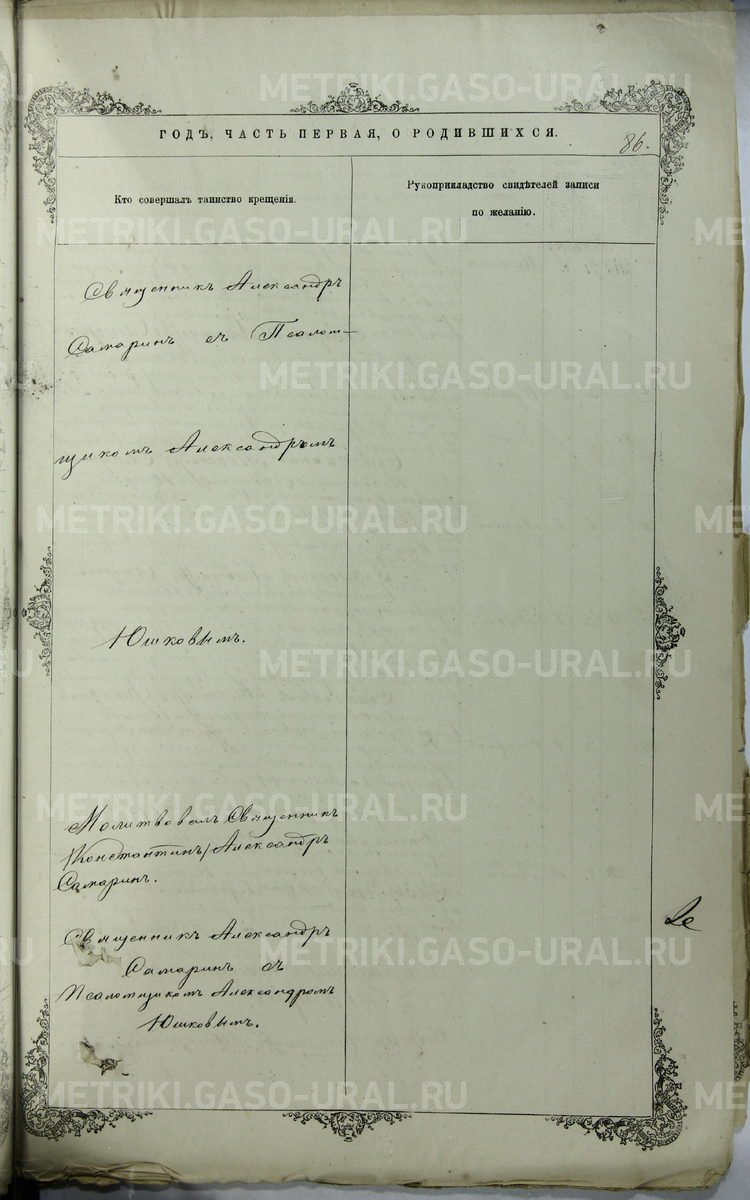 ГОДЪ, ЧАСТЬ ПЕРВАЯ, О РОДИВШИХСЯ.
86.
Кто совершалъ таинство крещенія.
Рукоприкладство свидѣтелей записи
по желанію.
Священникъ Александръ
Самаринъ съ Псалом-
щикомъ Александромъ
Юшковымъ.
Молитвовалъ Священникъ
/Константинъ/ Александръ
Самаринъ.
Священникъ Александръ
Самаринъ съ
Псаломщикомъ Александромъ
Юшковымъ.
METRIKI.GASO-URAL.RU